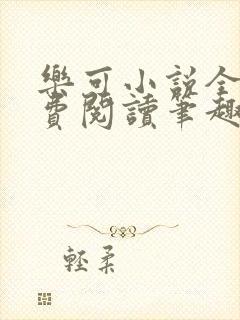 樂可小說全
費閱讀筆趣
輕柔